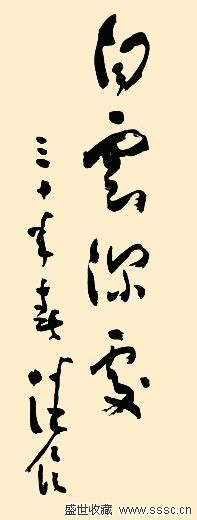 白雲深處
三十年春
盛世收藏 www.sssc.cn